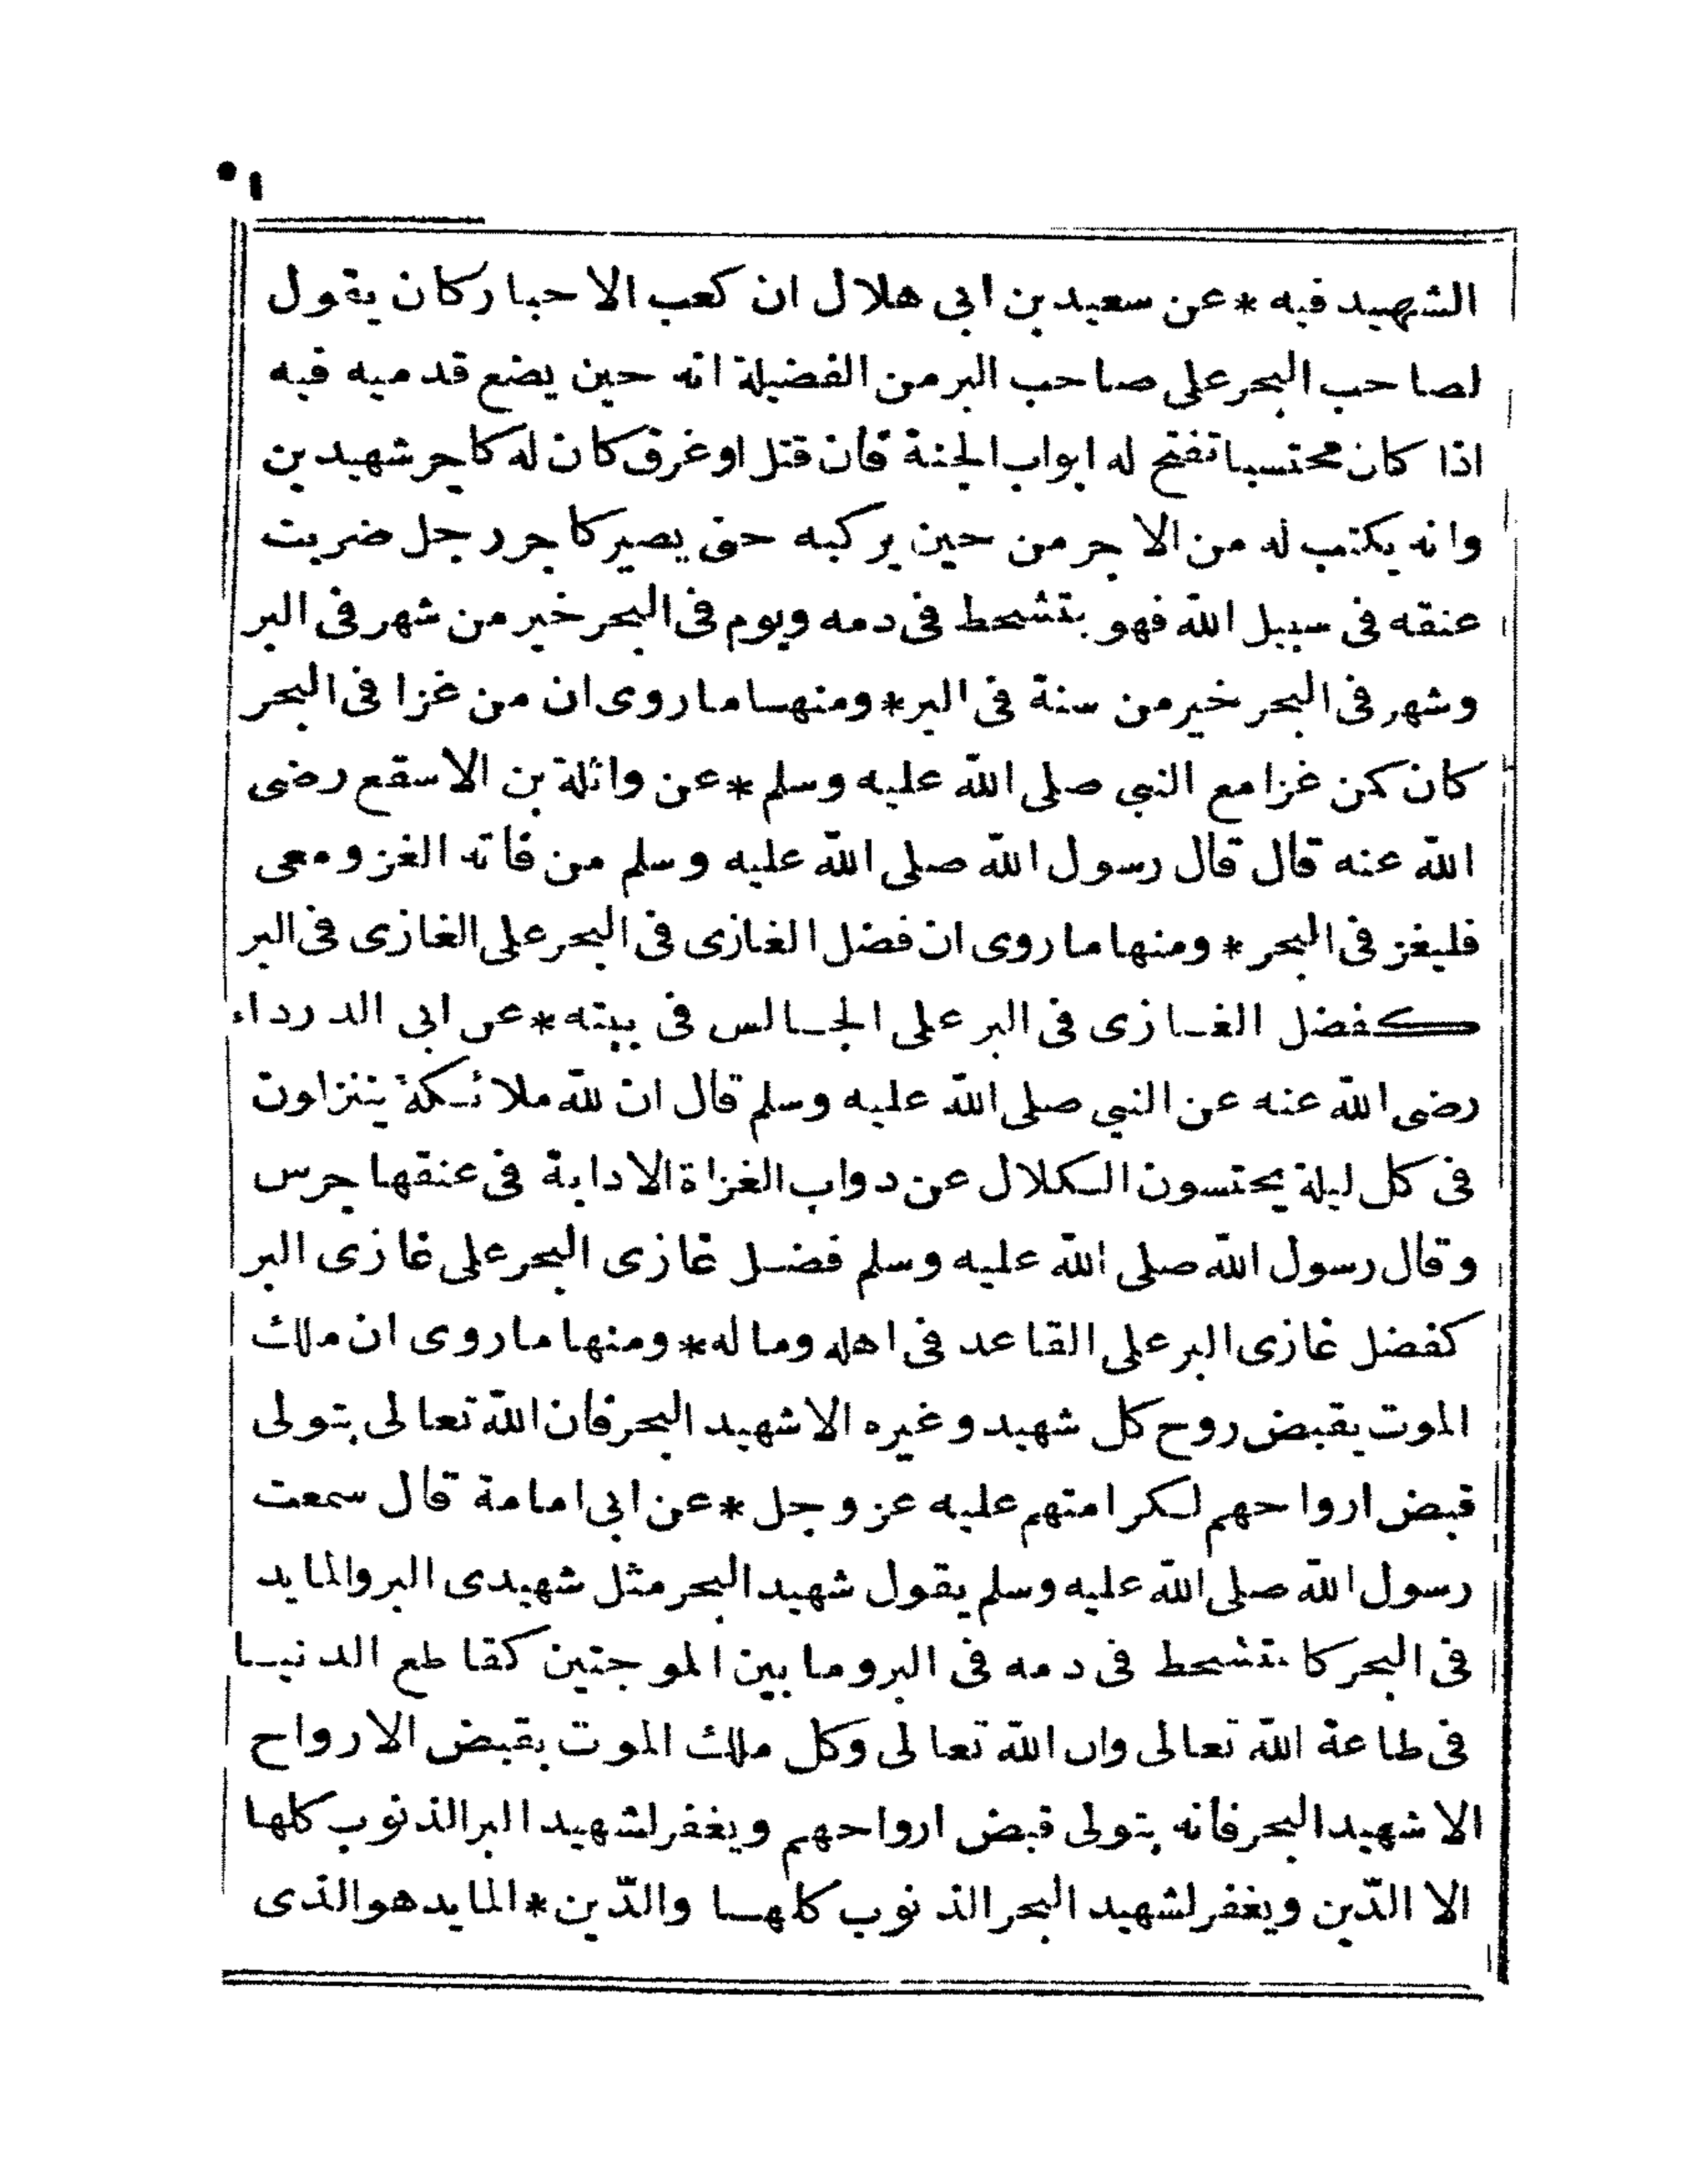 ٥١
الشهيد فيه * عن سعيد بن ابى هلال ان كعب الاحبار كان يقول
لصاحب البحر على صاحب البر من الفضيلة انه حين يضع قدميه فيه
اذا كان محتسبا تفتح له ابواب الجنة فان قتل او غرق كان له كاجر شهيدين
وانه يكتب له من الاجر من حين يركبه حتى يصير كاجر رجل ضربت
عنقه فى سبيل الله فهو يتشحط فى دمه ويوم فى البحر خير من شهر فى البر
وشهر فى البحر خير من سنة فى البر * ومنها ما روى ان من غزا فى البحر
كان كمن غزا مع النبي صلى الله عليه وسلم * عن واثلة بن الاسقع رضى
الله عنه قال قال رسول الله صلى الله عليه وسلم من فاته الغزو معى
فليغز فى البحر * ومنها ما روى ان فضل الغازى فى البحر على الغازى فى البر
كفضل الغازى فى البر على الجالس فى بيته * عن ابى الدرداء
رضى الله عنه عن النبي صلى الله عليه وسلم قال ان لله ملائكة يتنزلون
فى كل ليلة يحتسون الكلال عن دواب الغزاة الا دابة فى عنقها جرس
وقال رسول الله صلى الله عليه وسلم فضل غازى البحر على غازى البر
كفضل غازى البر على القاعد فى اهله وماله * ومنها ما روى ان ملك
الموت يقبض روح كل شهيد وغيره الا شهيد البحر فان الله تعالى يتولى
قبض ارواحهم لكرامتهم عليه عز وجل * عن ابى امامة قال سمعت
رسول الله صلى الله عليه وسلم يقول شهيد البحر مثل شهيدى البر والمايد
فى البحر كا يتشحط فى دمه فى البر وما بين الموجتين كقاطع الدنيا
فى طاعة الله تعالى وان الله تعالى وكل ملك الموت يقبض الارواح
الا شهيد البحر فانه يتولى قبض ارواحهم ويغفر لشهيد البر الذنوب كلها
الا الدّين ويغفر لشهيد البحر الذنوب كلها والدّين * المايد هو الذى